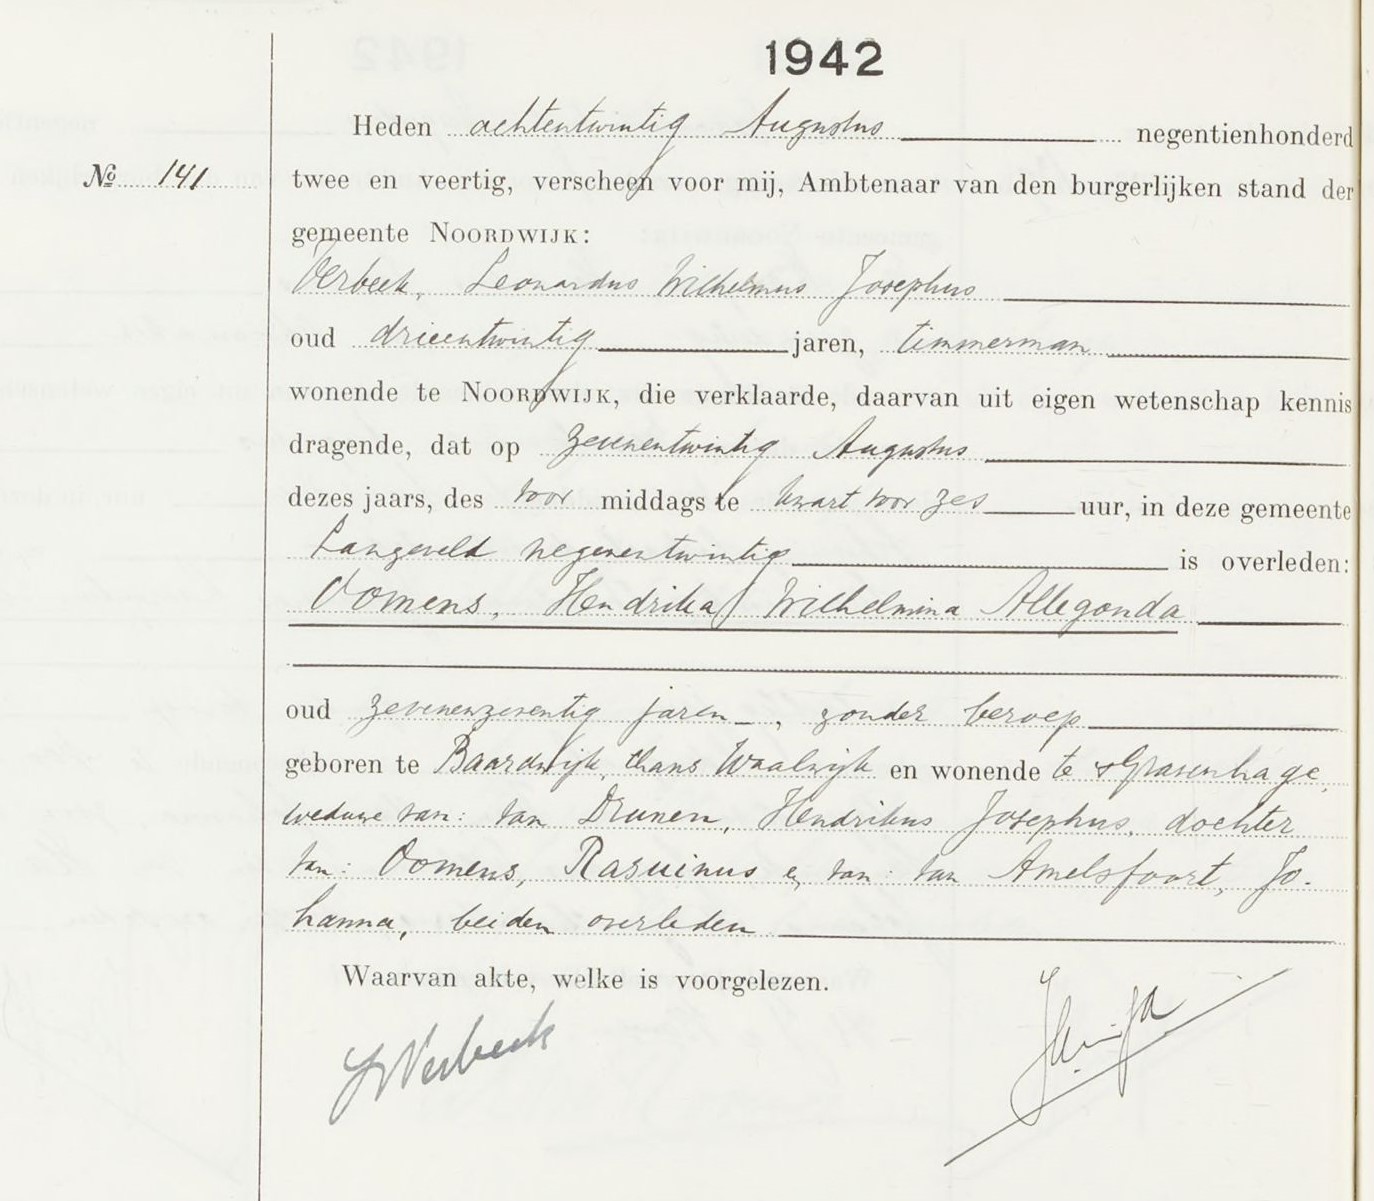 1942
Heden achtentwintig Augustus negentienhonderd
No 141
twee en veertig, verscheen voor mij, Ambtenaar van den burgerlijken stand der
gemeente NOORDWIJK:
Verbeek, Leonardus Wilhelmus Josephus
oud drieentwintig jaren, timmerman
wonende te NOORDWIJK, die verklaarde, daarvan uit eigen wetenschap kennis
dragende, dat op zevenentwintig Augustus
dezes jaars, des voor middags te kwart voor zes uur, in deze gemeente
Langeveld negenentwintig is overleden:
Oomens, Hendrika Wilhelmina Allegonda
oud zevenenzeventig jaren, zonder beroep
geboren te Baardwijk, thans Waalwijk en wonende te 's-Gravenhage,
weduwe van: van Drunen, Hendrikus Josephus, dochter
van: Oomens, Rasuinus en van: van Amelsfoort, Jo-
hanna, beiden overleden
Waarvan akte, welke is voorgelezen.
Verbeek